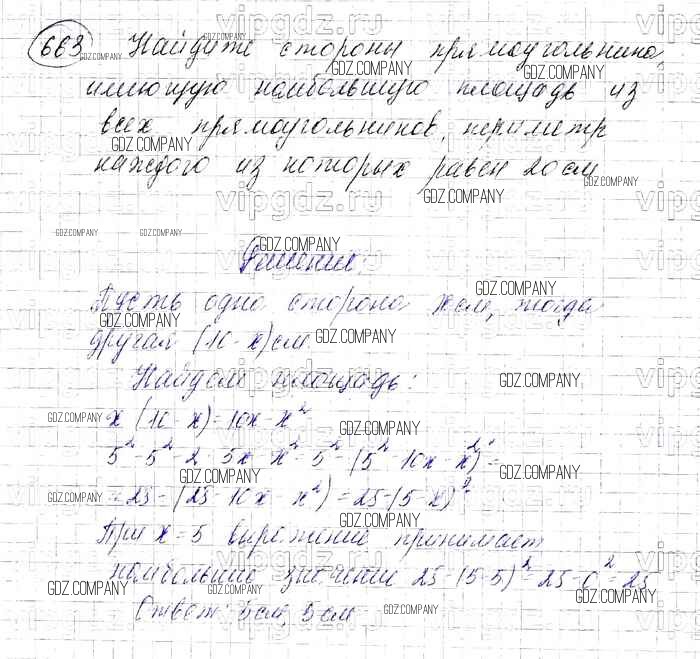 663 Найдите стороны прямоугольника,
имеющую наибольшую площадь из
всех прямоугольников, периметр
каждого из которых равен 20 см
Решение:
Пусть одна сторона x см, тогда
другая (10-x) см
Найдем площадь:
x (10-x)=10x-x²
5²-5² 2 5x x²=5²-(5²-10x x²)=
=25-(25-10x x²)=25-(5-x)²
При x=5 выражение принимает
наибольшие значение 25-(5-5)²=25-0²=25
Ответ: 5см, 5см
GDZ.COMPANY
vipgdz.ru